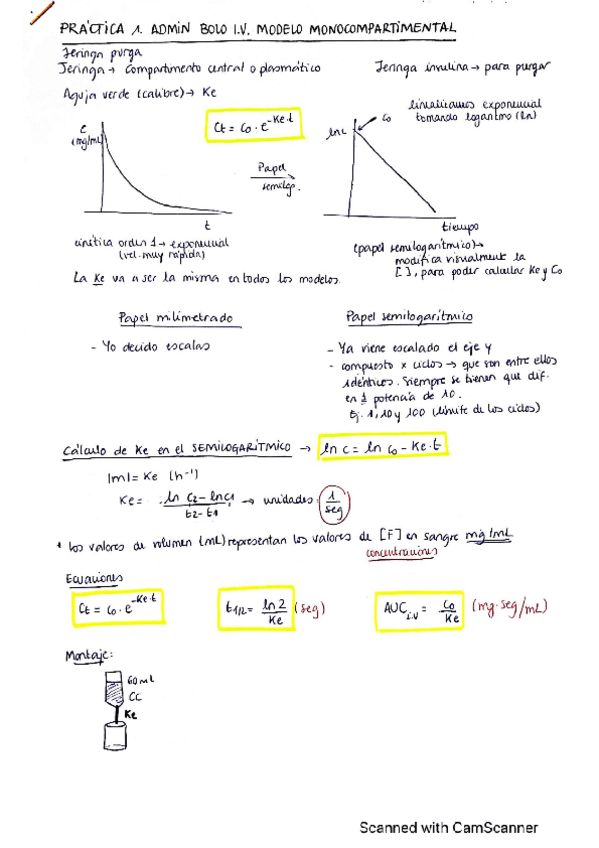 PRÁCTICA 1. ADMIN BOLO I.V. MODELO MONOCOMPARTIMENTAL
Jeringa purga
Jeringa → Compartimento central o plasmático
Jeringa insulina → para purgar
Aguja verde (calibre) → Ke
linealizamos exponencial
tomando logaritmo (ln)
C
(mg/mL)
Ct = C0 · e^-Ke·t
lnc
C0
Papel
semilog.
t
tiempo
cinética orden 1 → exponencial
(vel. muy rápida)
(papel semilogarítmico) →
modifica visualmente la
[ ], para poder calcular Ke y C0
La Ke va a ser la misma en todos los modelos.
Papel milimetrado
- Yo decido escalas
Papel semilogarítmico
- Ya viene escalado el eje y
- compuesto x ciclos → que son entre ellos
idénticos. Siempre se tienen que dif.
en 1 potencia de 10.
Ej. 1, 10 y 100 (límite de los ciclos)
Cálculo de Ke en el SEMILOGARÍTMICO → ln c = ln c0 - Ke·t
|m| = Ke (h⁻¹)
Ke = ln C2 - ln C1 / t2 - t1 → unidades: 1/seg
* los valores de volumen (mL) representan los valores de [F] en sangre mg/mL
concentraciones
Ecuaciones
Ct = C0 · e^-Ke·t
t1/2 = ln 2 / Ke (seg)
AUC i.v = C0 / Ke (mg·seg/mL)
Montaje:
60 mL
CC
Ke
Scanned with CamScanner